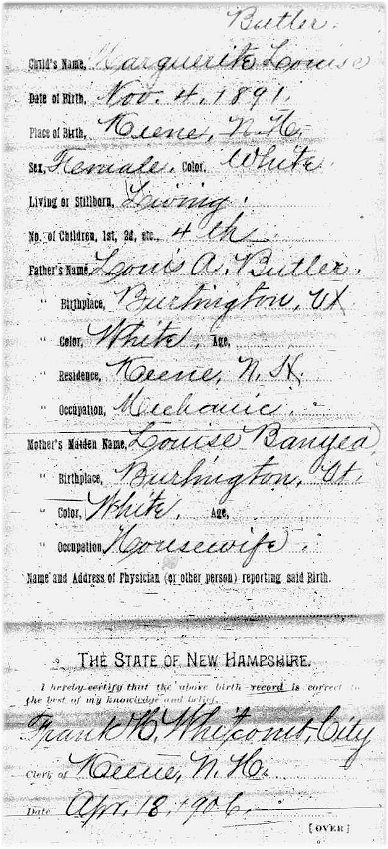 Butler.
Child's Name, Marguerite Louise
Date of Birth, Nov. 4, 1891.
Place of Birth, Keene, N.H.
Sex, Female. Color, White.
Living or Stillborn, Living.
No. of Children, 1st, 2d, etc., 4th
Father's Name, Louis A. Butler.
" Birthplace, Burlington, Vt
" Color, White. Age,
" Residence, Keene, N.H.
" Occupation, Mechanic.
Mother's Maiden Name, Louise Banyea,
" Birthplace, Burlington, Vt.
" Color, White. Age,
" Occupation, Housewife.
Name and Address of Physician (or other person) reporting said Birth.
THE STATE OF NEW HAMPSHIRE.
I hereby certify that the above birth record is correct to
the best of my knowledge and belief.
Frank H. Whitcomb, City
Clerk of Keene, N.H.
Date Apr. 18, 1906.
[OVER]